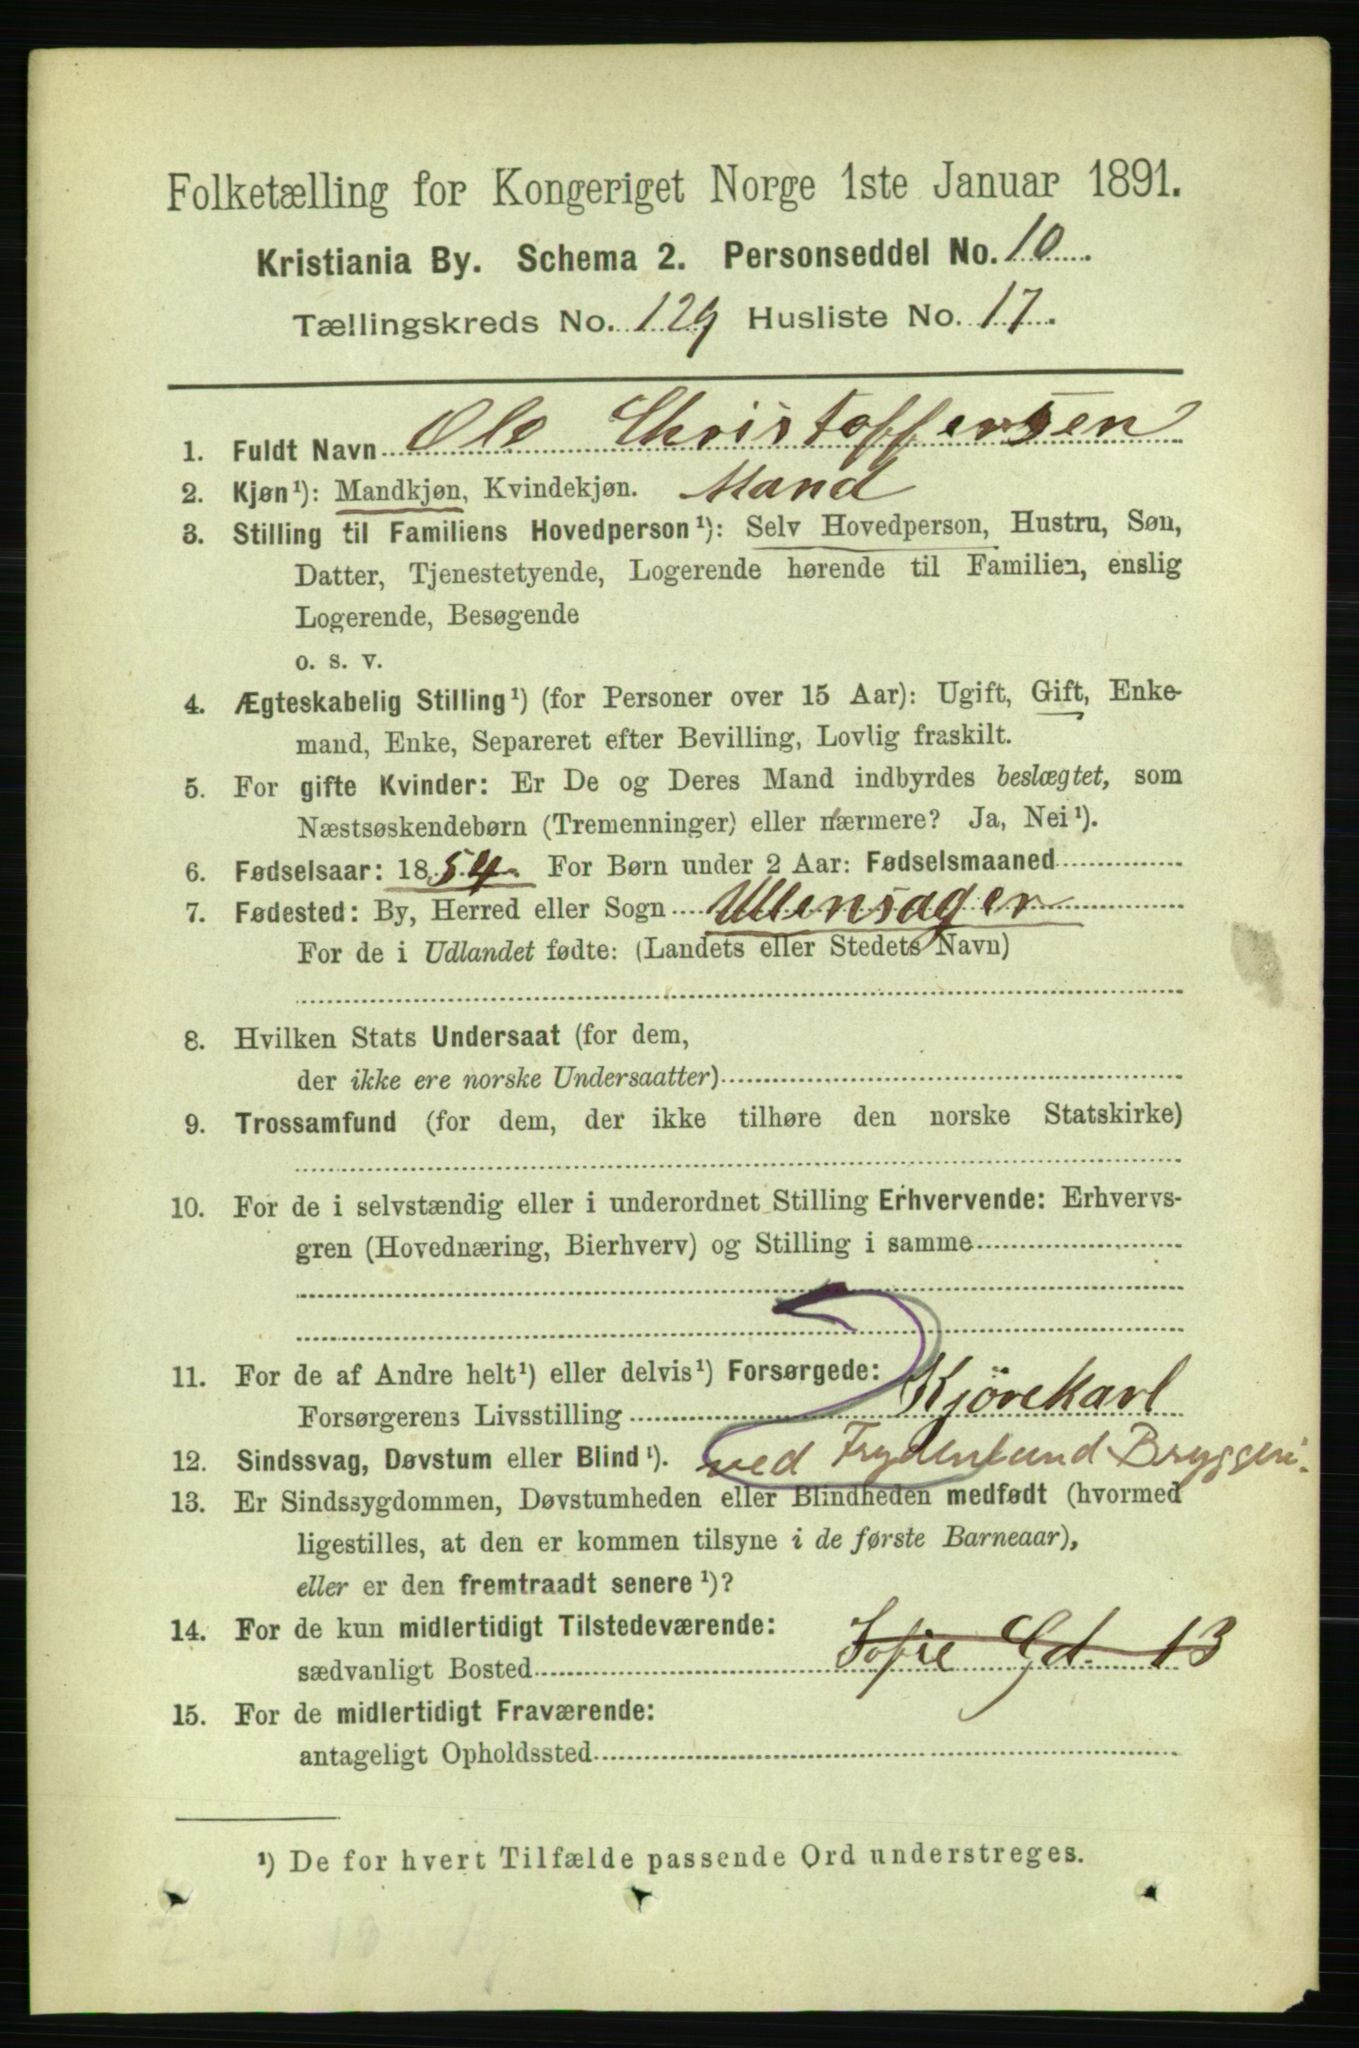 Folketælling for Kongeriget Norge 1ste Januar 1891.
Kristiania By. Schema 2. Personseddel No. 10.
Tællingskreds No. 129 Husliste No. 17.
1. Fuldt Navn Ole Christoffersen
2. Kjøn¹): Mandkjøn, Kvindekjøn. Mand
3. Stilling til Familiens Hovedperson¹): Selv Hovedperson, Hustru, Søn,
Datter, Tjenestetyende, Logerende hørende til Familien, enslig
Logerende, Besøgende
o. s. v.
4. Ægteskabelig Stilling¹) (for Personer over 15 Aar): Ugift, Gift, Enke-
mand, Enke, Separeret efter Bevilling, Lovlig fraskilt.
5. For gifte Kvinder: Er De og Deres Mand indbyrdes beslægtet, som
Næstsøskendebørn (Tremenninger) eller nærmere? Ja, Nei¹).
6. Fødselsaar: 1854. For Børn under 2 Aar: Fødselsmaaned
7. Fødested: By, Herred eller Sogn Ullensager
For de i Udlandet fødte: (Landets eller Stedets Navn)
8. Hvilken Stats Undersaat (for dem,
der ikke ere norske Undersaatter)
9. Trossamfund (for dem, der ikke tilhøre den norske Statskirke)
10. For de i selvstændig eller i underordnet Stilling Erhvervende: Erhvervs-
gren (Hovednæring, Bierhverv) og Stilling i samme
11. For de af Andre helt¹) eller delvis¹) Forsørgede:
Forsørgerens Livsstilling Kjørekarl
12. Sindssvag, Døvstum eller Blind¹). ved Frydenlund Bryggeri.
13. Er Sindssygdommen, Døvstumheden eller Blindheden medfødt (hvormed
ligestilles, at den er kommen tilsyne i de første Barneaar),
eller er den fremtraadt senere¹)?
14. For de kun midlertidigt Tilstedeværende:
sædvanligt Bosted Sofie Gd. 13
15. For de midlertidigt Fraværende:
antageligt Opholdssted
¹) De for hvert Tilfælde passende Ord understreges.